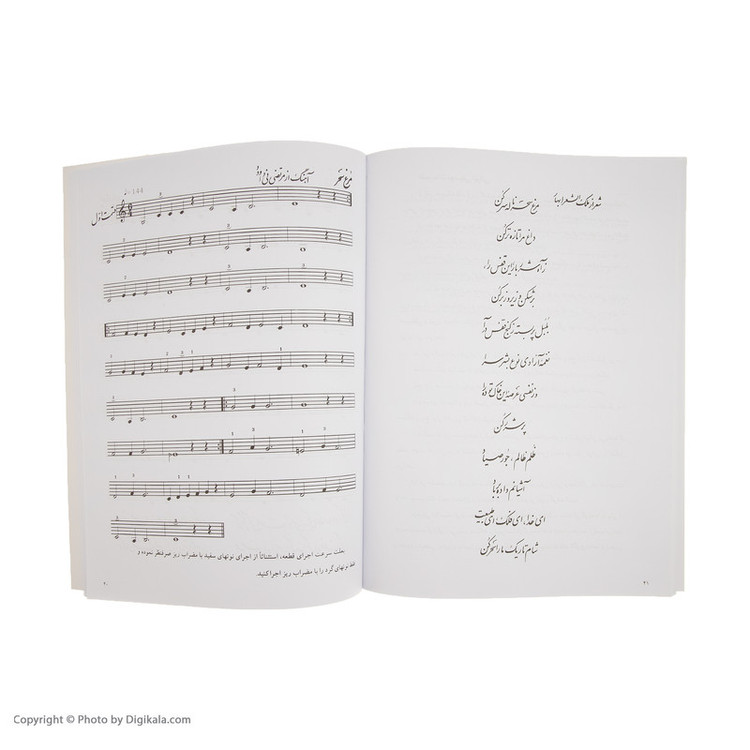 مرغ سحر
آهنگ از مرتضی نی‌داود
قسمت اول
= 144
بعلت سرعت اجرای قطعه، استثنائاً از اجرای نوتهای سفید با مضراب ریز صرفنظر نموده و
فقط نوتهای گرد را با مضراب ریز اجرا کنید.
شعر از ملک الشعراء بهار
مرغ سحر ناله سر کن
داغ مرا تازه تر کن
زآه شرربار این قفس را،
برشکن و زیر و زبر کن
بلبل پربسته ز کنج قفس درآ
نغمه آزادی نوع بشر سرا
در نفسی عرصه این خاک توده را
پر شرر کن
ظلم ظالم، جور صیاد
آشیانم داده بر باد
ای خدا، ای فلک، ای طبیعت
شام تاریک ما را سحر کن
Copyright © Photo by Digikala.com